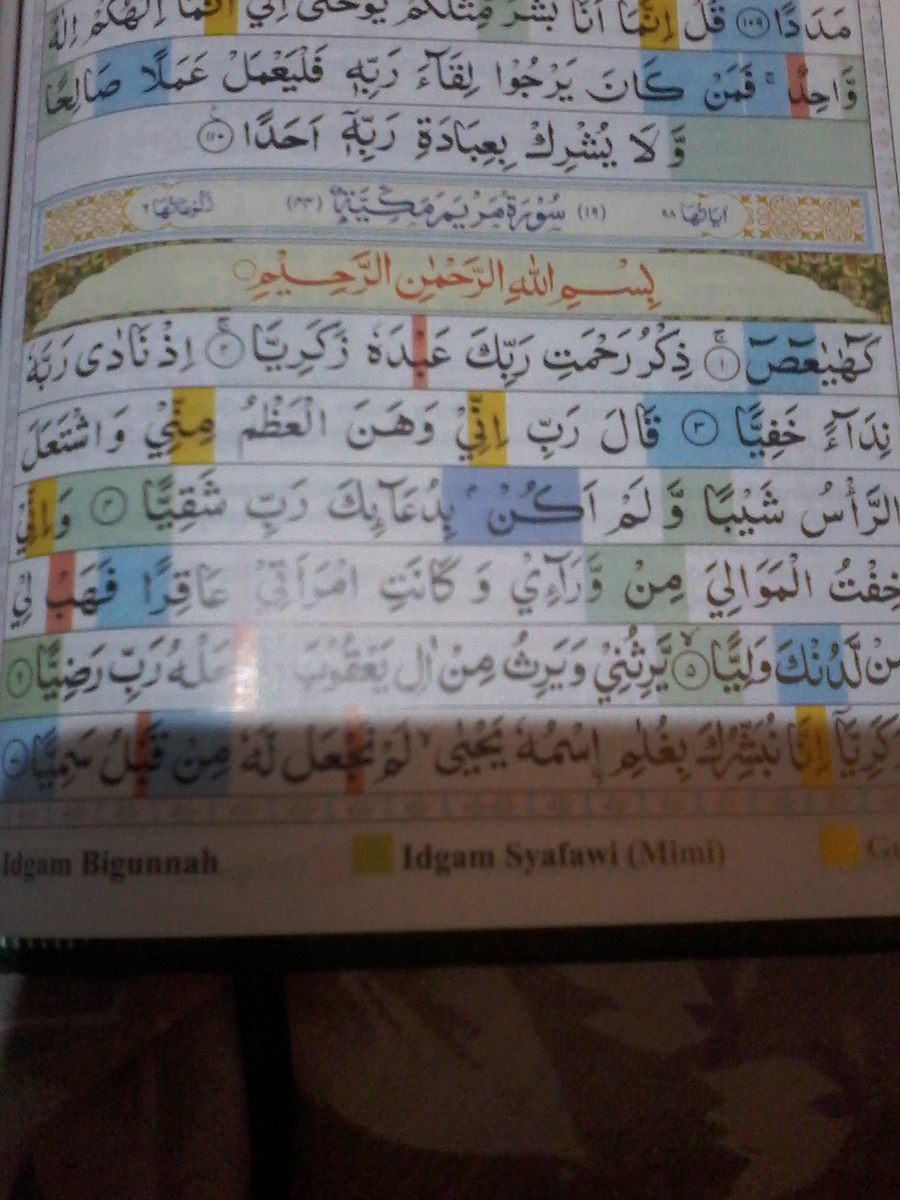 مَدَدًا ۝١٠٩ قُلْ اِنَّمَآ اَنَا۠ بَشَرٌ مِّثْلُكُمْ يُوْحٰٓى اِلَيَّ اَنَّمَآ اِلٰهُكُمْ اِلٰهٌ
وَّاحِدٌۚ فَمَنْ كَانَ يَرْجُوْا لِقَاۤءَ رَبِّهٖ فَلْيَعْمَلْ عَمَلًا صَالِحًا
وَّلَا يُشْرِكْ بِعِبَادَةِ رَبِّهٖٓ اَحَدًا ۝١١٠
اٰيَاتُهَا ٩٨ (١٩) سُوْرَةُ مَرْيَمَ مَكِّيَّةٌ (٤٤) رُكُوْعَاتُهَا ٦
بِسْمِ اللهِ الرَّحْمٰنِ الرَّحِيْمِ
كۤهٰيٰعۤصۤ ۝١ ذِكْرُ رَحْمَتِ رَبِّكَ عَبْدَهٗ زَكَرِيَّا ۝٢ اِذْ نَادٰى رَبَّهٗ
نِدَاۤءً خَفِيًّا ۝٣ قَالَ رَبِّ اِنِّيْ وَهَنَ الْعَظْمُ مِنِّيْ وَاشْتَعَلَ
الرَّأْسُ شَيْبًا وَّلَمْ اَكُنْۢ بِدُعَاۤىِٕكَ رَبِّ شَقِيًّا ۝٤ وَاِنِّيْ
خِفْتُ الْمَوَالِيَ مِنْ وَّرَاۤءِيْ وَكَانَتِ امْرَاَتِيْ عَاقِرًا فَهَبْ لِيْ
مِنْ لَّدُنْكَ وَلِيًّا ۝٥ يَّرِثُنِيْ وَيَرِثُ مِنْ اٰلِ يَعْقُوْبَ رَبِّ رَضِيًّا ۝٦
اِنَّا نُبَشِّرُكَ بِغُلٰمِ اسْمُهٗ يَحْيٰىۙ لَمْ نَجْعَلْ لَّهٗ مِنْ قَبْلُ سَمِيًّا ۝٧
Idgam Bigunnah Idgam Syafawi (Mimi)